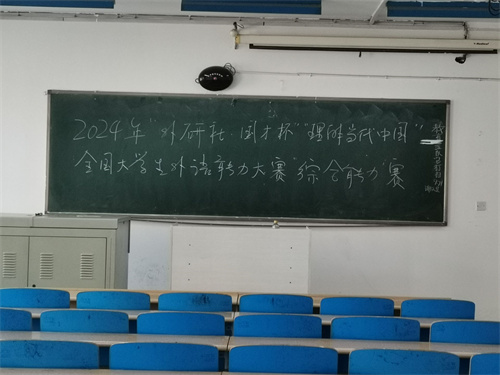 2024年"外研社·国才杯""理解当代中国"
全国大学生外语能力大赛"综合能力"赛